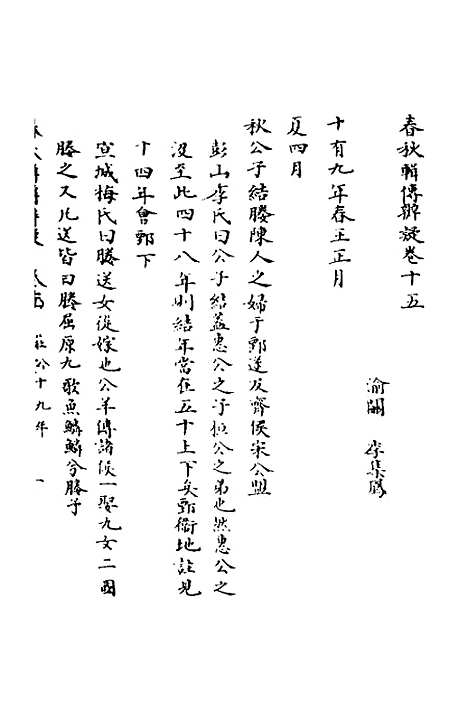 春秋輯傳辦疑卷十五
渝關 李集鳳
十有九年春王正月
夏四月
秋公子結媵陳人之婦于鄄遂及齊侯宋公盟
彭山季氏曰公子結蓋惠公之子桓公之弟也然惠公之
沒至此四十八年則結年當在五十上下矣鄄衞地註見
十四年會鄄下
宣城梅氏曰媵送女從嫁也公羊傳諸侯一娶九女二國
媵之又凡送皆曰媵屈原九歌魚鱗鱗兮媵予
莊公十九年 一